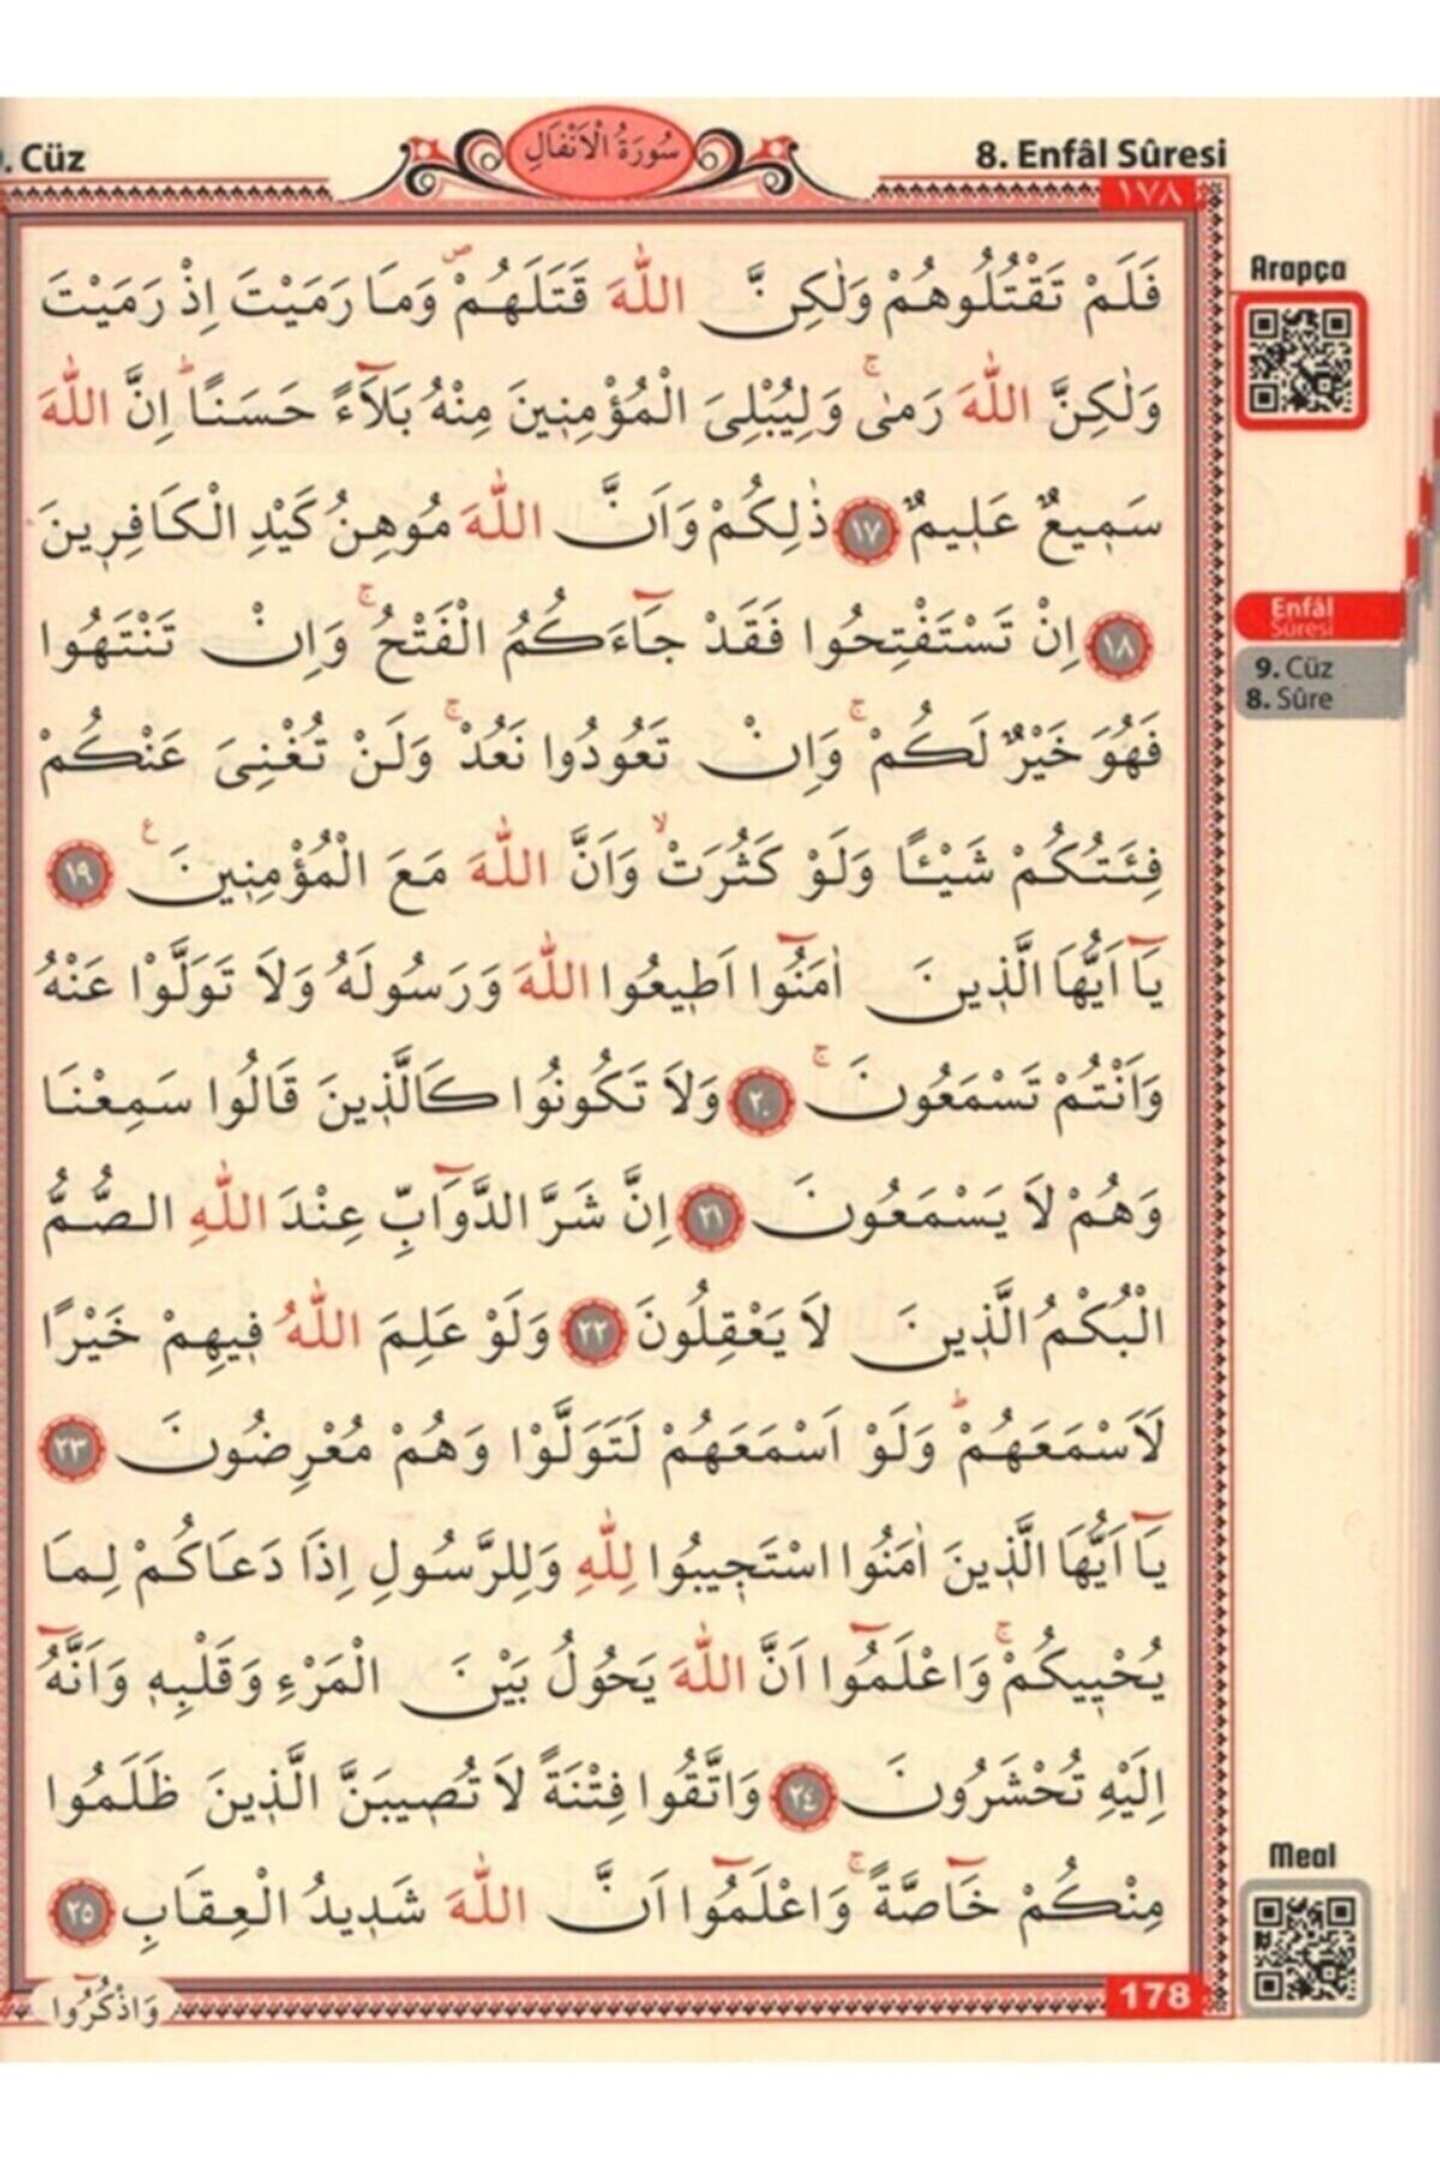 . Cüz
سُورَةُ الْاَنْفَالِ
8. Enfâl Sûresi
١٧٨
فَلَمْ تَقْتُلُوهُمْ وَلٰكِنَّ اللّٰهَ قَتَلَهُمْۖ وَمَا رَمَيْتَ اِذْ رَمَيْتَ
وَلٰكِنَّ اللّٰهَ رَمٰىۚ وَلِيُبْلِيَ الْمُؤْمِنٖينَ مِنْهُ بَلَٓاءً حَسَنًاؕ اِنَّ اللّٰهَ
سَمٖيعٌ عَلٖيمٌ ﴿١٧﴾ ذٰلِكُمْ وَاَنَّ اللّٰهَ مُوهِنُ كَيْدِ الْكَافِرٖينَ
﴿١٨﴾ اِنْ تَسْتَفْتِحُوا فَقَدْ جَٓاءَكُمُ الْفَتْحُۚ وَاِنْ تَنْتَهُوا
فَهُوَ خَيْرٌ لَكُمْۚ وَاِنْ تَعُودُوا نَعُدْۚ وَلَنْ تُغْنِيَ عَنْكُمْ
فِئَتُكُمْ شَيْـًٔا وَلَوْ كَثُرَتْۙ وَاَنَّ اللّٰهَ مَعَ الْمُؤْمِنٖينَࣖ ﴿١٩﴾
يَٓا اَيُّهَا الَّذٖينَ اٰمَنُٓوا اَطٖيعُوا اللّٰهَ وَرَسُولَهُ وَلَا تَوَلَّوْا عَنْهُ
وَاَنْتُمْ تَسْمَعُونَۚ ﴿٢٠﴾ وَلَا تَكُونُوا كَالَّذٖينَ قَالُوا سَمِعْنَا
وَهُمْ لَا يَسْمَعُونَ ﴿٢١﴾ اِنَّ شَرَّ الدَّوَٓابِّ عِنْدَ اللّٰهِ الصُّمُّ
الْبُكْمُ الَّذٖينَ لَا يَعْقِلُونَ ﴿٢٢﴾ وَلَوْ عَلِمَ اللّٰهُ فٖيهِمْ خَيْرًا
لَاَسْمَعَهُمْؕ وَلَوْ اَسْمَعَهُمْ لَتَوَلَّوْا وَهُمْ مُعْرِضُونَ ﴿٢٣﴾
يَٓا اَيُّهَا الَّذٖينَ اٰمَنُوا اسْتَجٖيبُوا لِلّٰهِ وَلِلرَّسُولِ اِذَا دَعَاكُمْ لِمَا
يُحْيٖيكُمْۚ وَاعْلَمُٓوا اَنَّ اللّٰهَ يَحُولُ بَيْنَ الْمَرْءِ وَقَلْبِهٖ وَاَنَّهُٓ
اِلَيْهِ تُحْشَرُونَ ﴿٢٤﴾ وَاتَّقُوا فِتْنَةً لَا تُصٖيبَنَّ الَّذٖينَ ظَلَمُوا
مِنْكُمْ خَٓاصَّةًۚ وَاعْلَمُٓوا اَنَّ اللّٰهَ شَدٖيدُ الْعِقَابِ ﴿٢٥﴾
وَاذْكُرُٓوا
178
Arapça
Enfâl
Sûresi
9. Cüz
8. Sûre
Meal